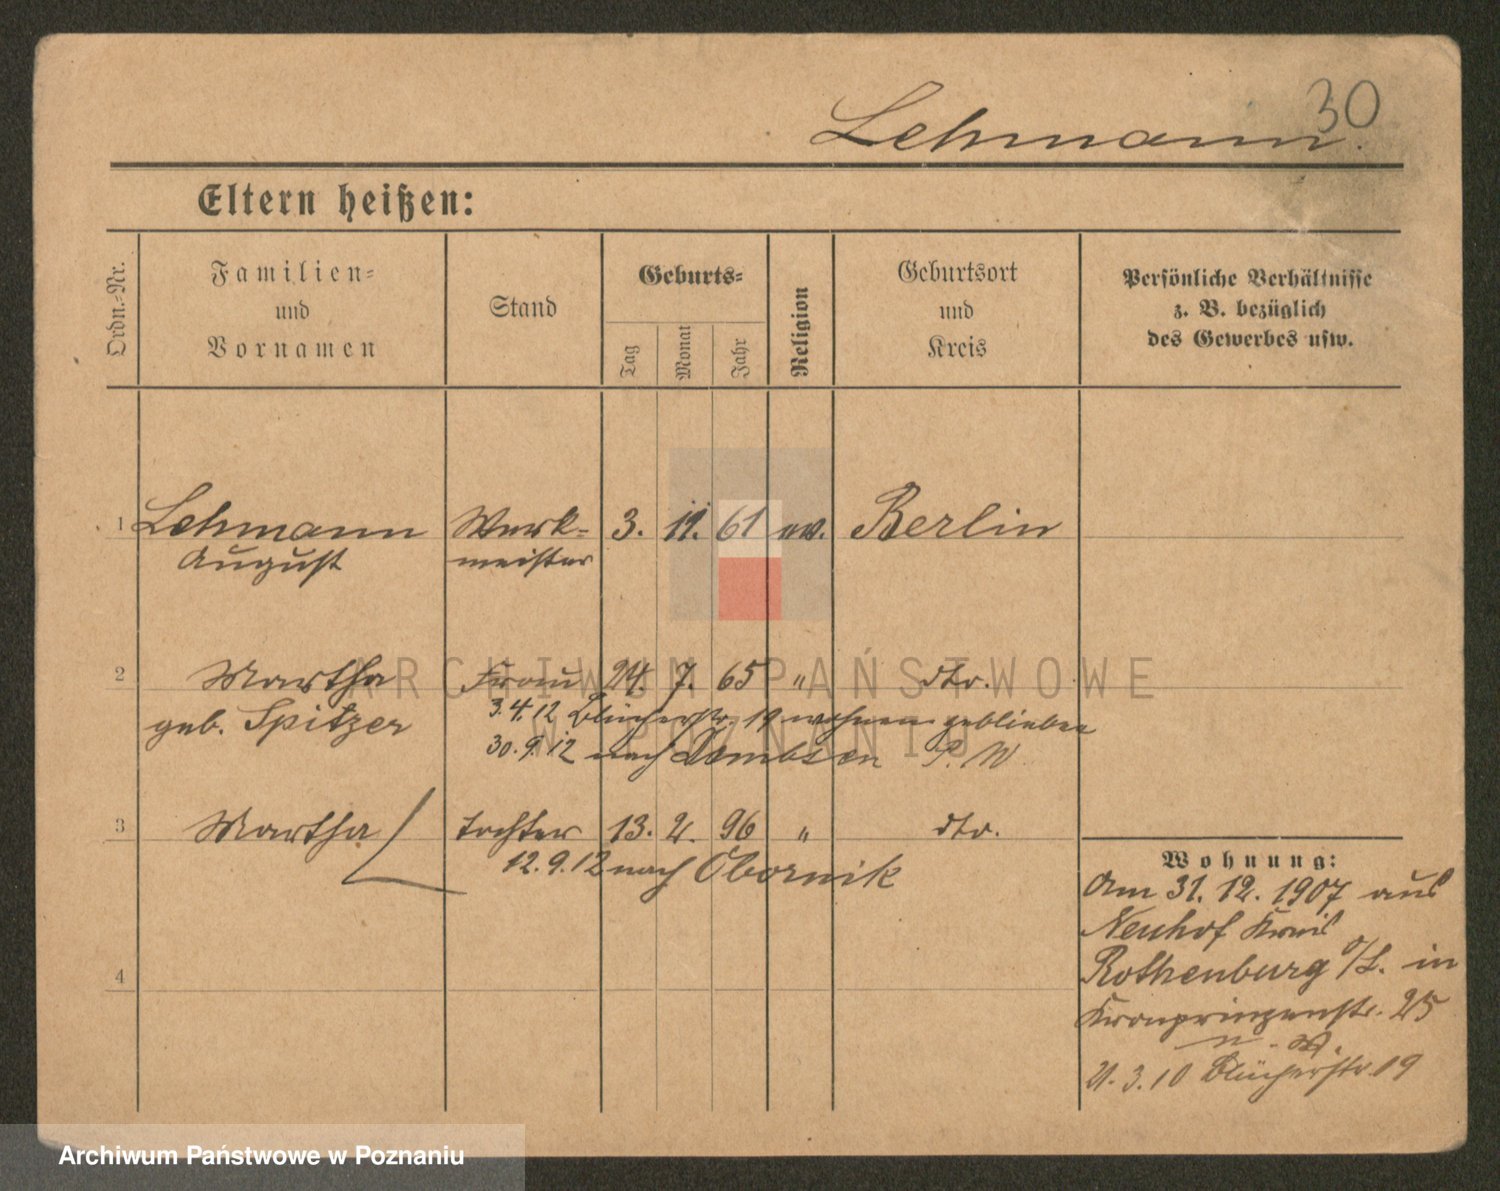 30
Lehmann.
Eltern heißen:
Ordn.-Nr.
Familien-
und
Vornamen
Stand
Geburts-
Tag
Monat
Jahr
Religion
Geburtsort
und
Kreis
Persönliche Verhältnisse
z. B. bezüglich
des Gewerbes usw.
1 Lehmann Werk- 3. 11. 61 ev. Berlin
August meister
2 Martha Frau 24. 7. 65 " dto.
geb. Spitzer 3.4.12 Blücherstr. 19 wohnen geblieben
30.9.12 nach Dembsen P. W
3 Martha Tochter 13. 2. 96 " dto.
12.9.12 nach Obornik
4
Wohnung:
Am 31. 12. 1907 aus
Neuhof Kreis
Rothenburg o/L. in
Kronprinzenstr. 25
21.3.10 Blücherstr. 19
ARCHIWUM PAŃSTWOWE
W POZNANIU
Archiwum Państwowe w Poznaniu